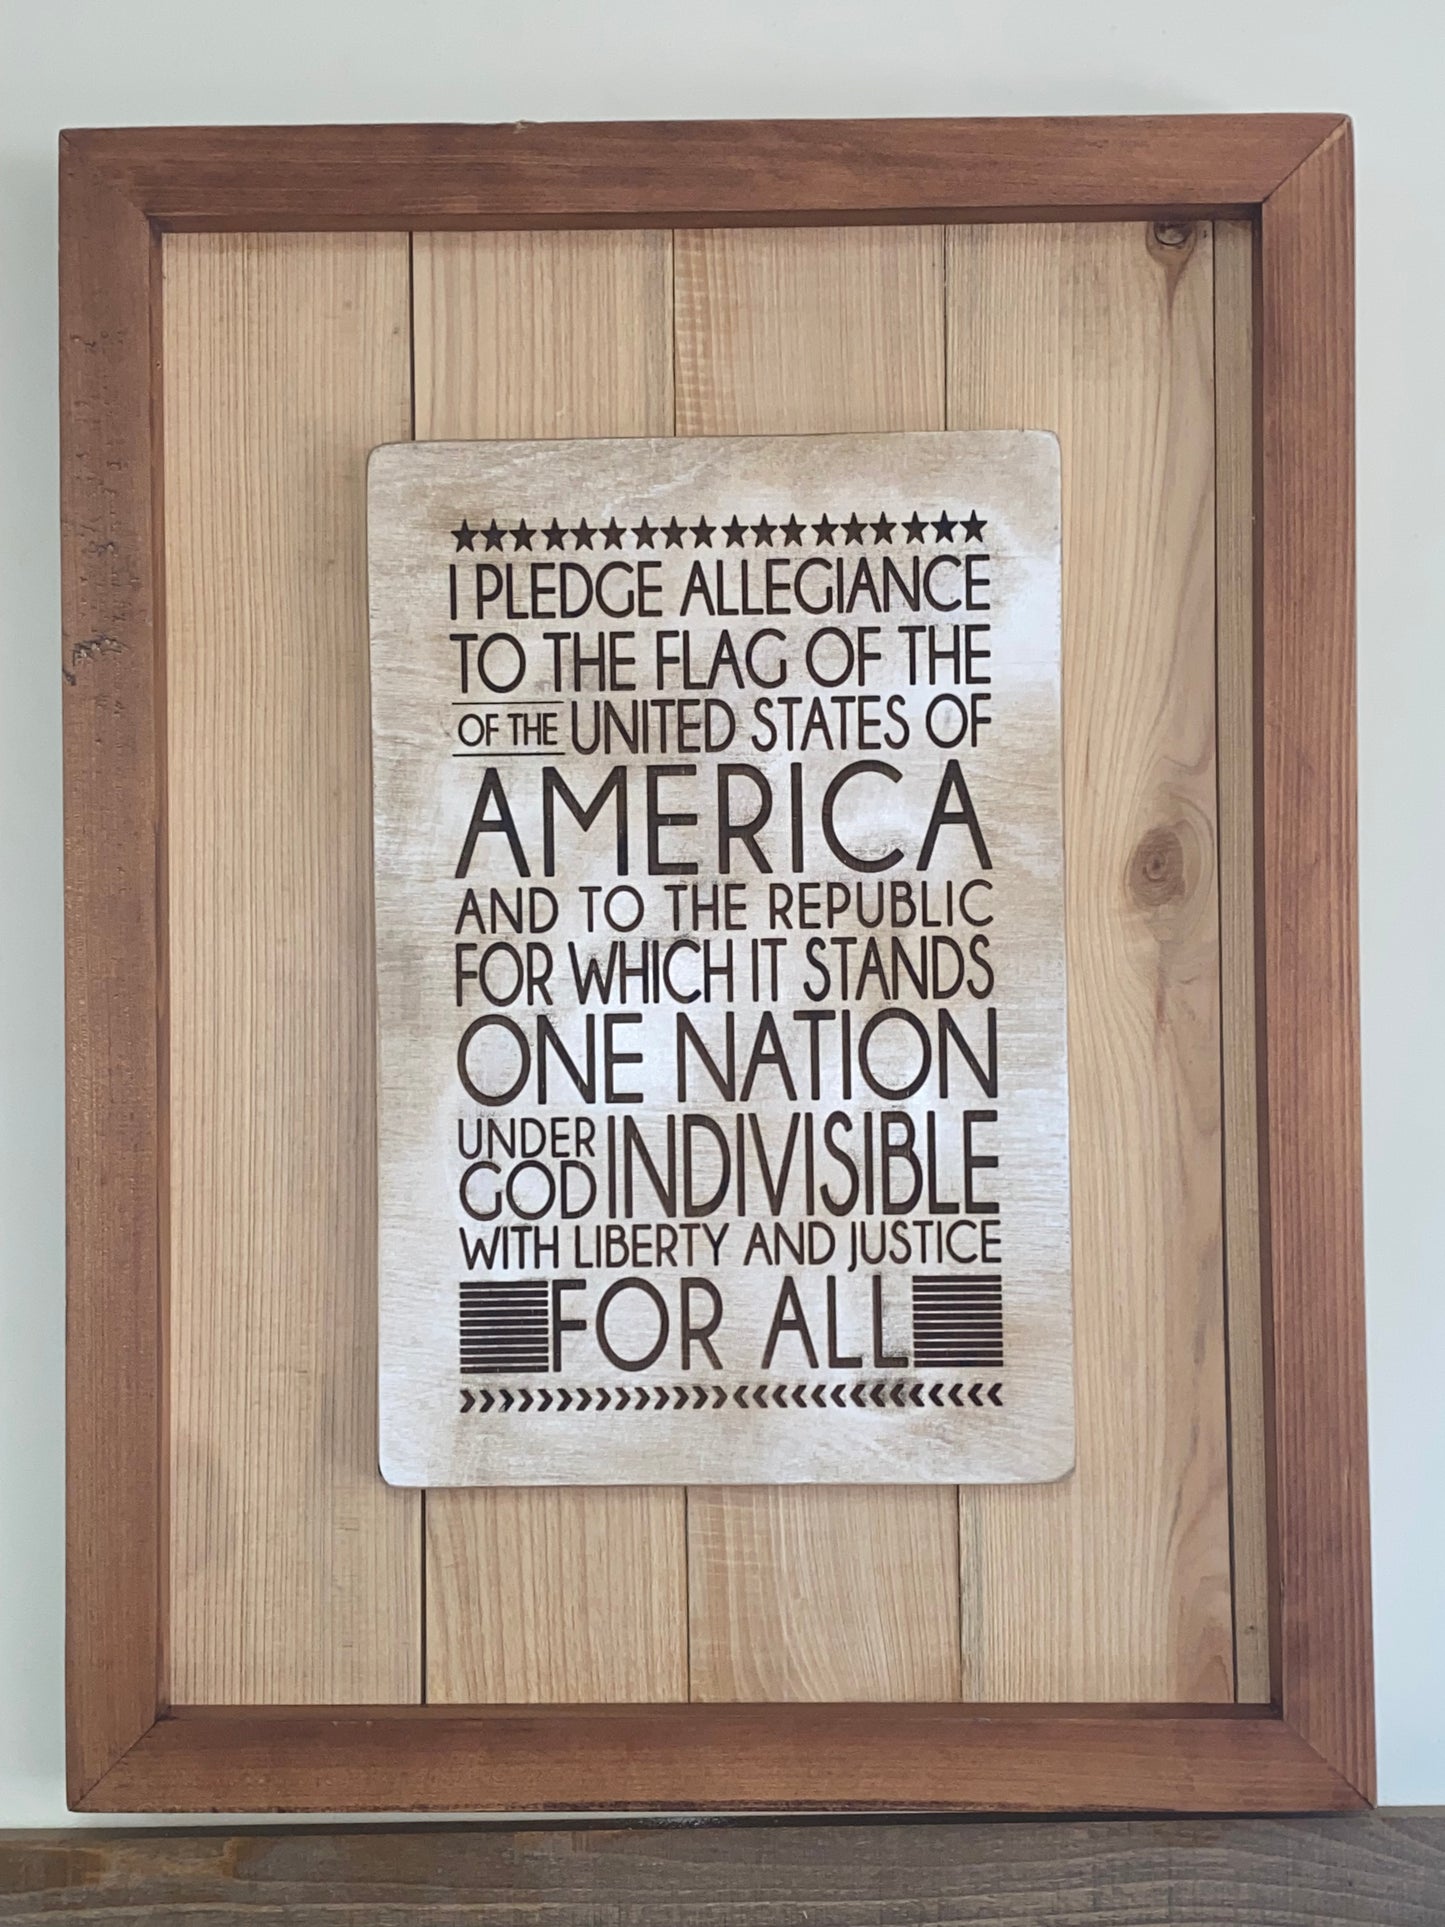 I PLEDGE ALLEGIANCE
TO THE FLAG OF THE
OF THE UNITED STATES OF
AMERICA
AND TO THE REPUBLIC
FOR WHICH IT STANDS
ONE NATION
UNDER GOD INDIVISIBLE
WITH LIBERTY AND JUSTICE
FOR ALL